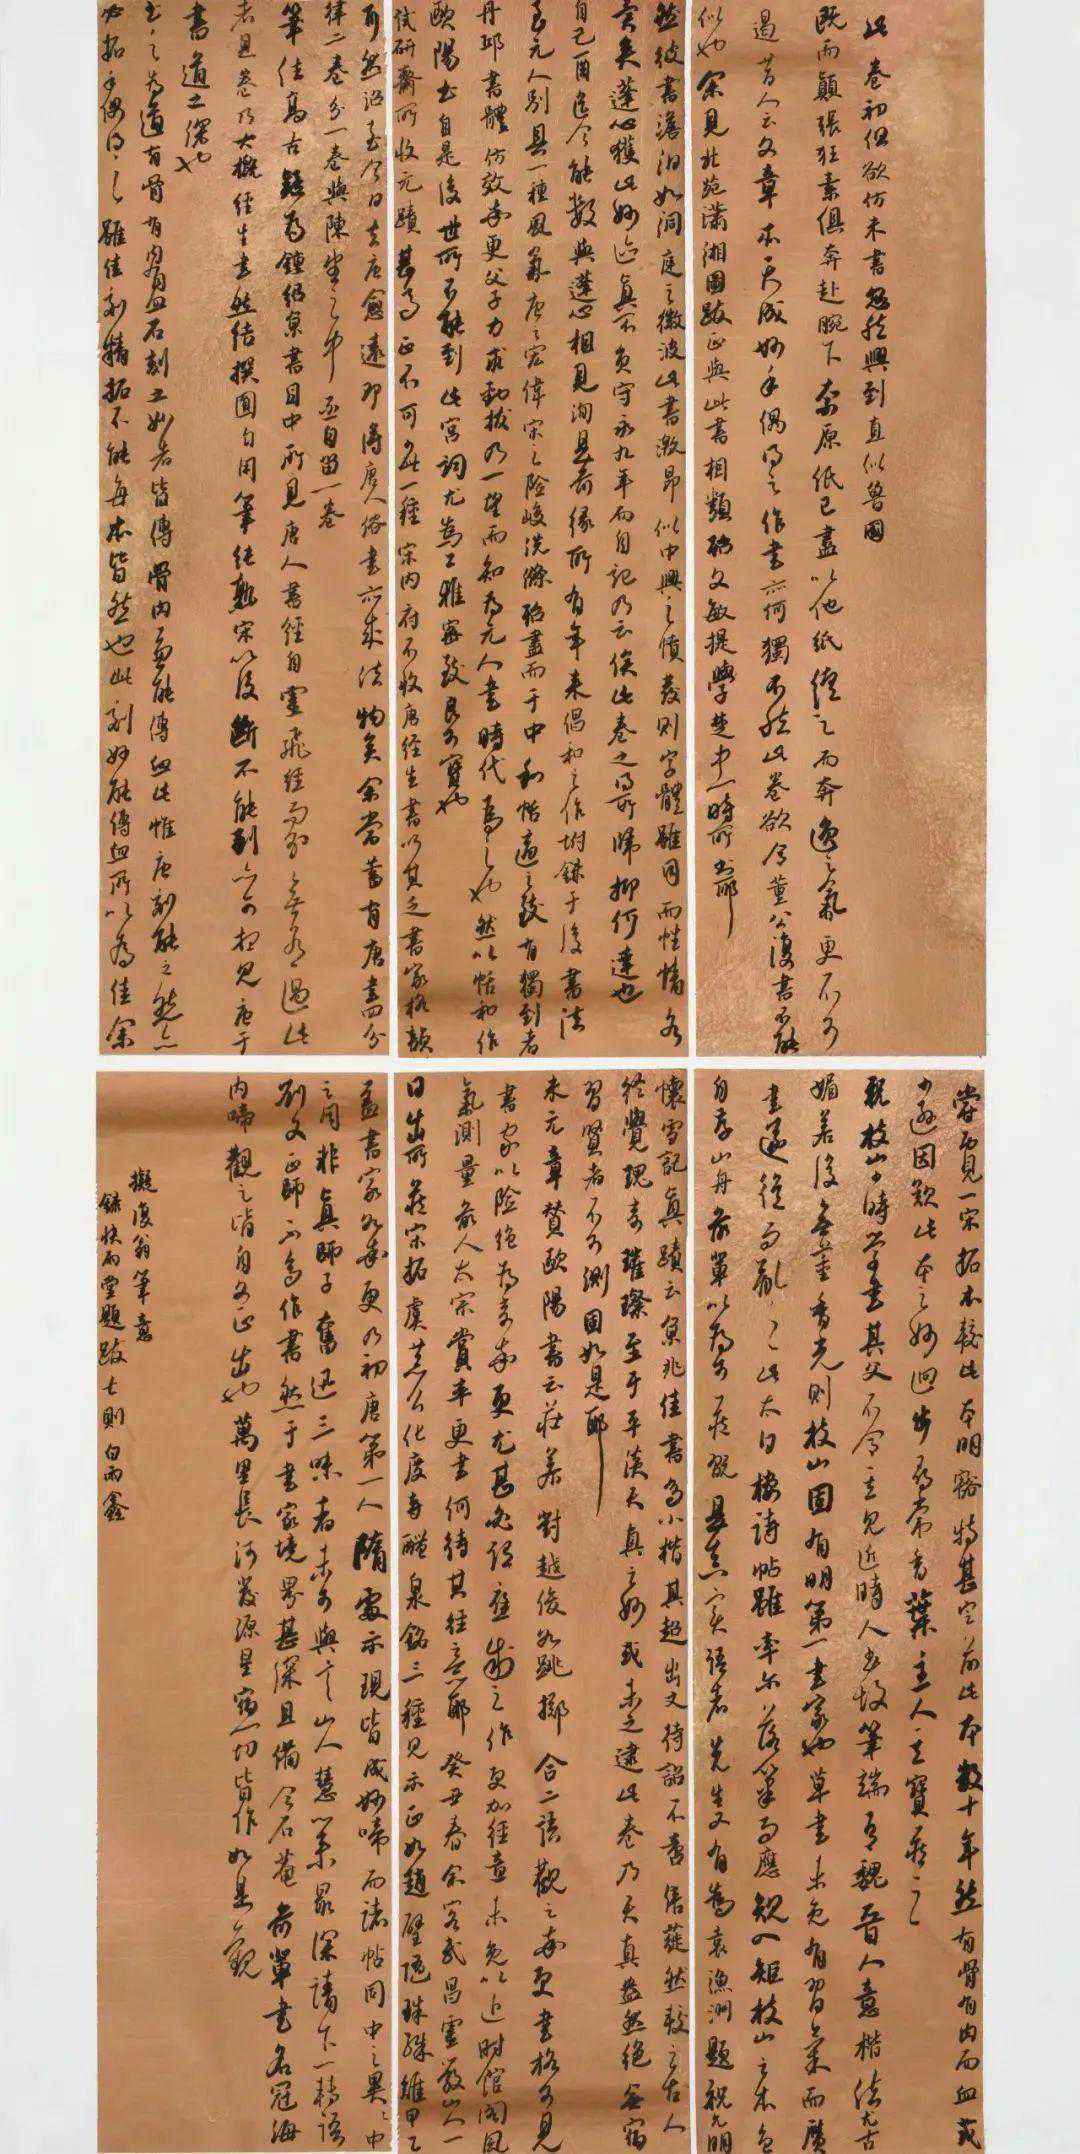 此卷初但欲仿米書忽然興到直似魯國
既而顛張狂素俱奔赴腕下奈原紙已盡以他紙續之而奔逸之氣更不可
遏昔人云文章本天成妙手偶得之作書亦何獨不然此卷欲令董公復書不能
似也余見北苑瀟湘圖跋正與此書相類殆文敏提學楚中一時所書耶
然彼書澹泊如洞庭之微波此書激昂似中興之憤發則字體雖同而性情各
異矣蓬心獲此妙迹真不負守永九年而自記乃云俟此卷之得所歸抑何達也
自己酉迄今能數與蓬心相見洵是前緣所有年來倡和之作坿錄于後書法
至元人別具一種風氣唐之宏偉宋之險峻洗滌殆盡而于中和恬適之致有獨到者
丹邱書體仿效率更父子力求勁拔乃一望而知為元人書時代為之也然以恬和作
歐陽書自是後世所不能到此宮詞尤為工雅密致良可寶也
試研齋所收元蹟甚多正不可無一種宋内府不收唐經生書以其乏書家格韻
耳然沿至今日去唐愈遠即得唐人俗書亦成法物矣余嘗蓄有唐書四分
律二卷分一卷與陳生之中而自留一卷
筆佳高古疑為鍾紹京書目中所見唐人書經自靈飛經而外無有過此
者是卷乃大概經生書然結撰圓匀用筆純熟宋以後斷不能到亦可想見唐于
書道之深也
書之為道有骨有肉有血石刻之妙者皆傳骨肉而兼能傳血此惟唐刻能之然亦
必拓手偶得之雖佳刻精拓不能每本皆然也此刻妙能傳血所以為佳余
嘗覓一宋拓本較此本明豁特甚定前此本數十年然有骨有肉而血或
少遜因歎此本之妙香葉主人其寶藏之
祝枝山少時學書其父不令其見近時人書故筆端有魏晉人意楷法尤古
媚若後無董香光則枝山固有明第一書家也草書未免有習氣而贗
書遂從而亂之此太白樓詩帖雖率尔落筆而應規入矩枝山之本色
自存山舟前輩以為可藏是真實語者先生又有為袁漁洲題祝允明
懷雪記真蹟云京兆佳書為小楷其超出文待詔不啻倍蓰然較之古人
終覺瑰奇璀璨至于平淡天真之妙或未之逮此卷乃天真盎然絕無宿
習賢者不可測固如是耶
米元章贊歐陽書云莊若對越俊如跳擲合二語觀之率更書格可見
書家以險絕為奇率更尤甚設應制之作更加經意未免以近时馆阁風
氣測量前人太宗賞率更書何待其經意耶癸丑春余客武昌靈巖山人一
日出所藏宋拓虞恭公化度寺醴泉銘三種見示正如趙璧隨珠殊難甲乙
蓋書家如率更乃初唐第一人隨處示現皆成妙啼而諸帖同中之異異中
之同非真師子奮迅三昧者未可與言山人慧業最深請下一轉語
劉文正師不多作書然于書家境界甚深且備今石菴前輩書名冠海
内啼觀之皆自文正出也萬里長河發源星宿一切皆作如是觀
擬復翁筆意
錄快雨堂題跋七則白雨鑫